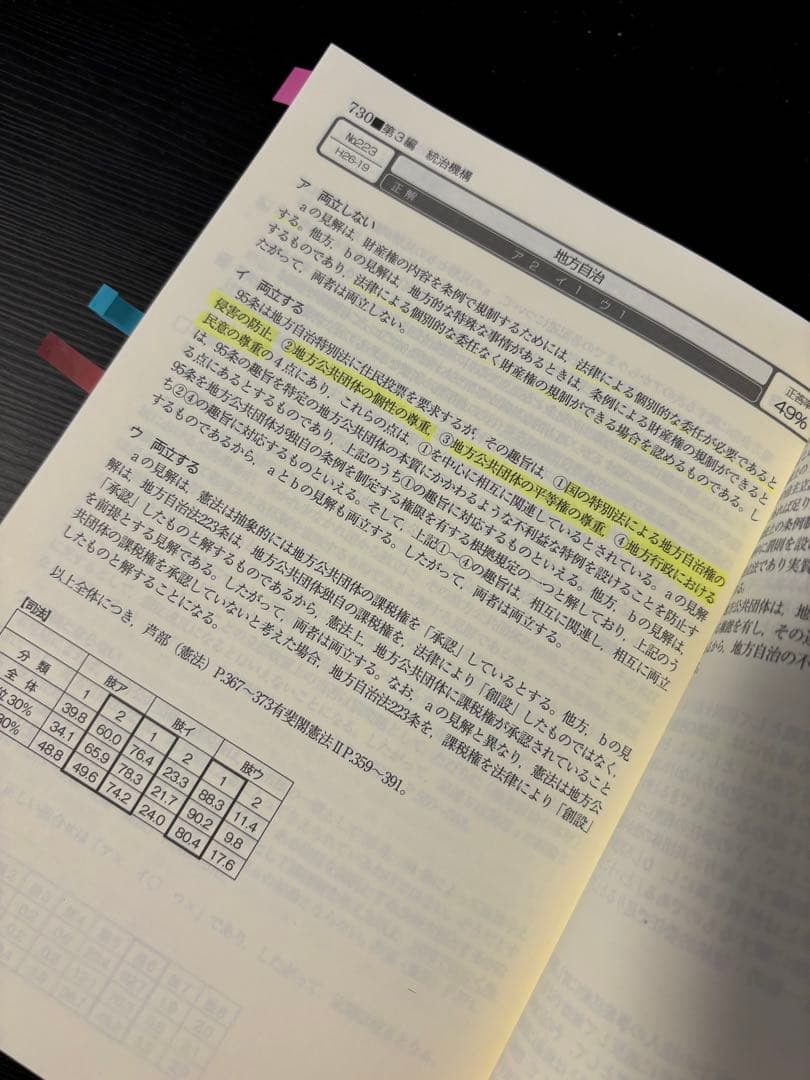 730■第3編　統治機構
No.223
H26-19
地方自治
正解
ア2　イ1　ウ1
正答率
49%
ア　両立しない
aの見解は、財産権の内容を条例で規制するためには、法律による個別的な委任が必要であると
する。他方、bの見解は、地方的な特殊な事情があるときは、条例による財産権の規制ができると
するものであり、法律による個別的な委任なく財産権の規制ができる場合を認めるものである。し
たがって、両者は両立しない。
イ　両立する
95条は地方自治特別法に住民投票を要求するが、その趣旨は、①国の特別法による地方自治権の
侵害の防止、②地方公共団体の個性の尊重、③地方公共団体の平等権の尊重、④地方行政における
民意の尊重の4点にあり、これらの点は、①を中心に相互に関連しているとされている。aの見解
は、95条の趣旨を特定の地方公共団体の本質にかかわるような不利益な特例を設けることを防止す
る点にあるとするものであり、上記のうち①の趣旨に対応するものといえる。他方、bの見解は、
95条を地方公共団体が独自の条例を制定する権限を有する根拠規定の一つと解しており、上記のう
ち②④の趣旨に対応するものといえる。そして、上記①～④の趣旨は、相互に関連し、相互に両立
するものであるから、aとbの見解も両立する。したがって、両者は両立する。
ウ　両立する
aの見解は、憲法は抽象的には地方公共団体の課税権を「承認」しているとする。他方、bの見
解は、地方自治法223条は、地方公共団体独自の課税権を、法律により「創設」したものではなく、
「承認」したものと解するものであるから、憲法上、地方公共団体に課税権が承認されていること
を前提とする見解である。したがって、両者は両立する。なお、aの見解と異なり、憲法は地方公
共団体の課税権を承認していないと考えた場合、地方自治法223条を、課税権を法律により「創設」
したものと解することになる。
以上全体につき、芦部（憲法）P.367～373有斐閣憲法ⅡP.359～391。
【司法】
分類　肢ア　肢イ　肢ウ
1　2　1　2　1　2
全体　39.8　60.0　76.4　23.3　88.3　11.4
位30%　34.1　65.9　78.3　21.7　90.2　9.8
30%　48.8　49.6　74.2　24.0　80.4　17.6